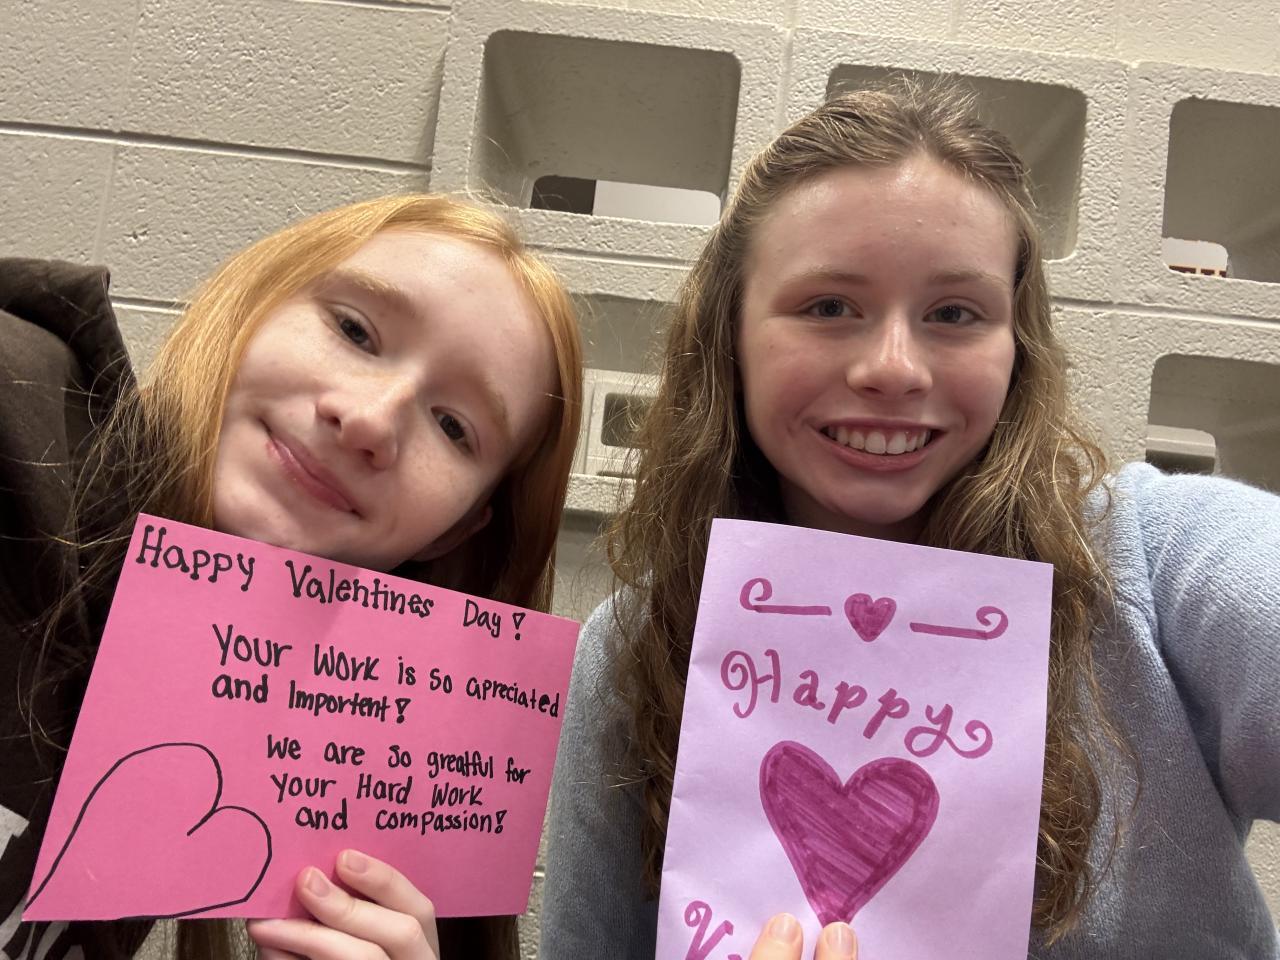 Happy Valentines Day!
Your Work is so apreciated
and Important!
We are so greatful for
your Hard Work
and compassion!
Happy